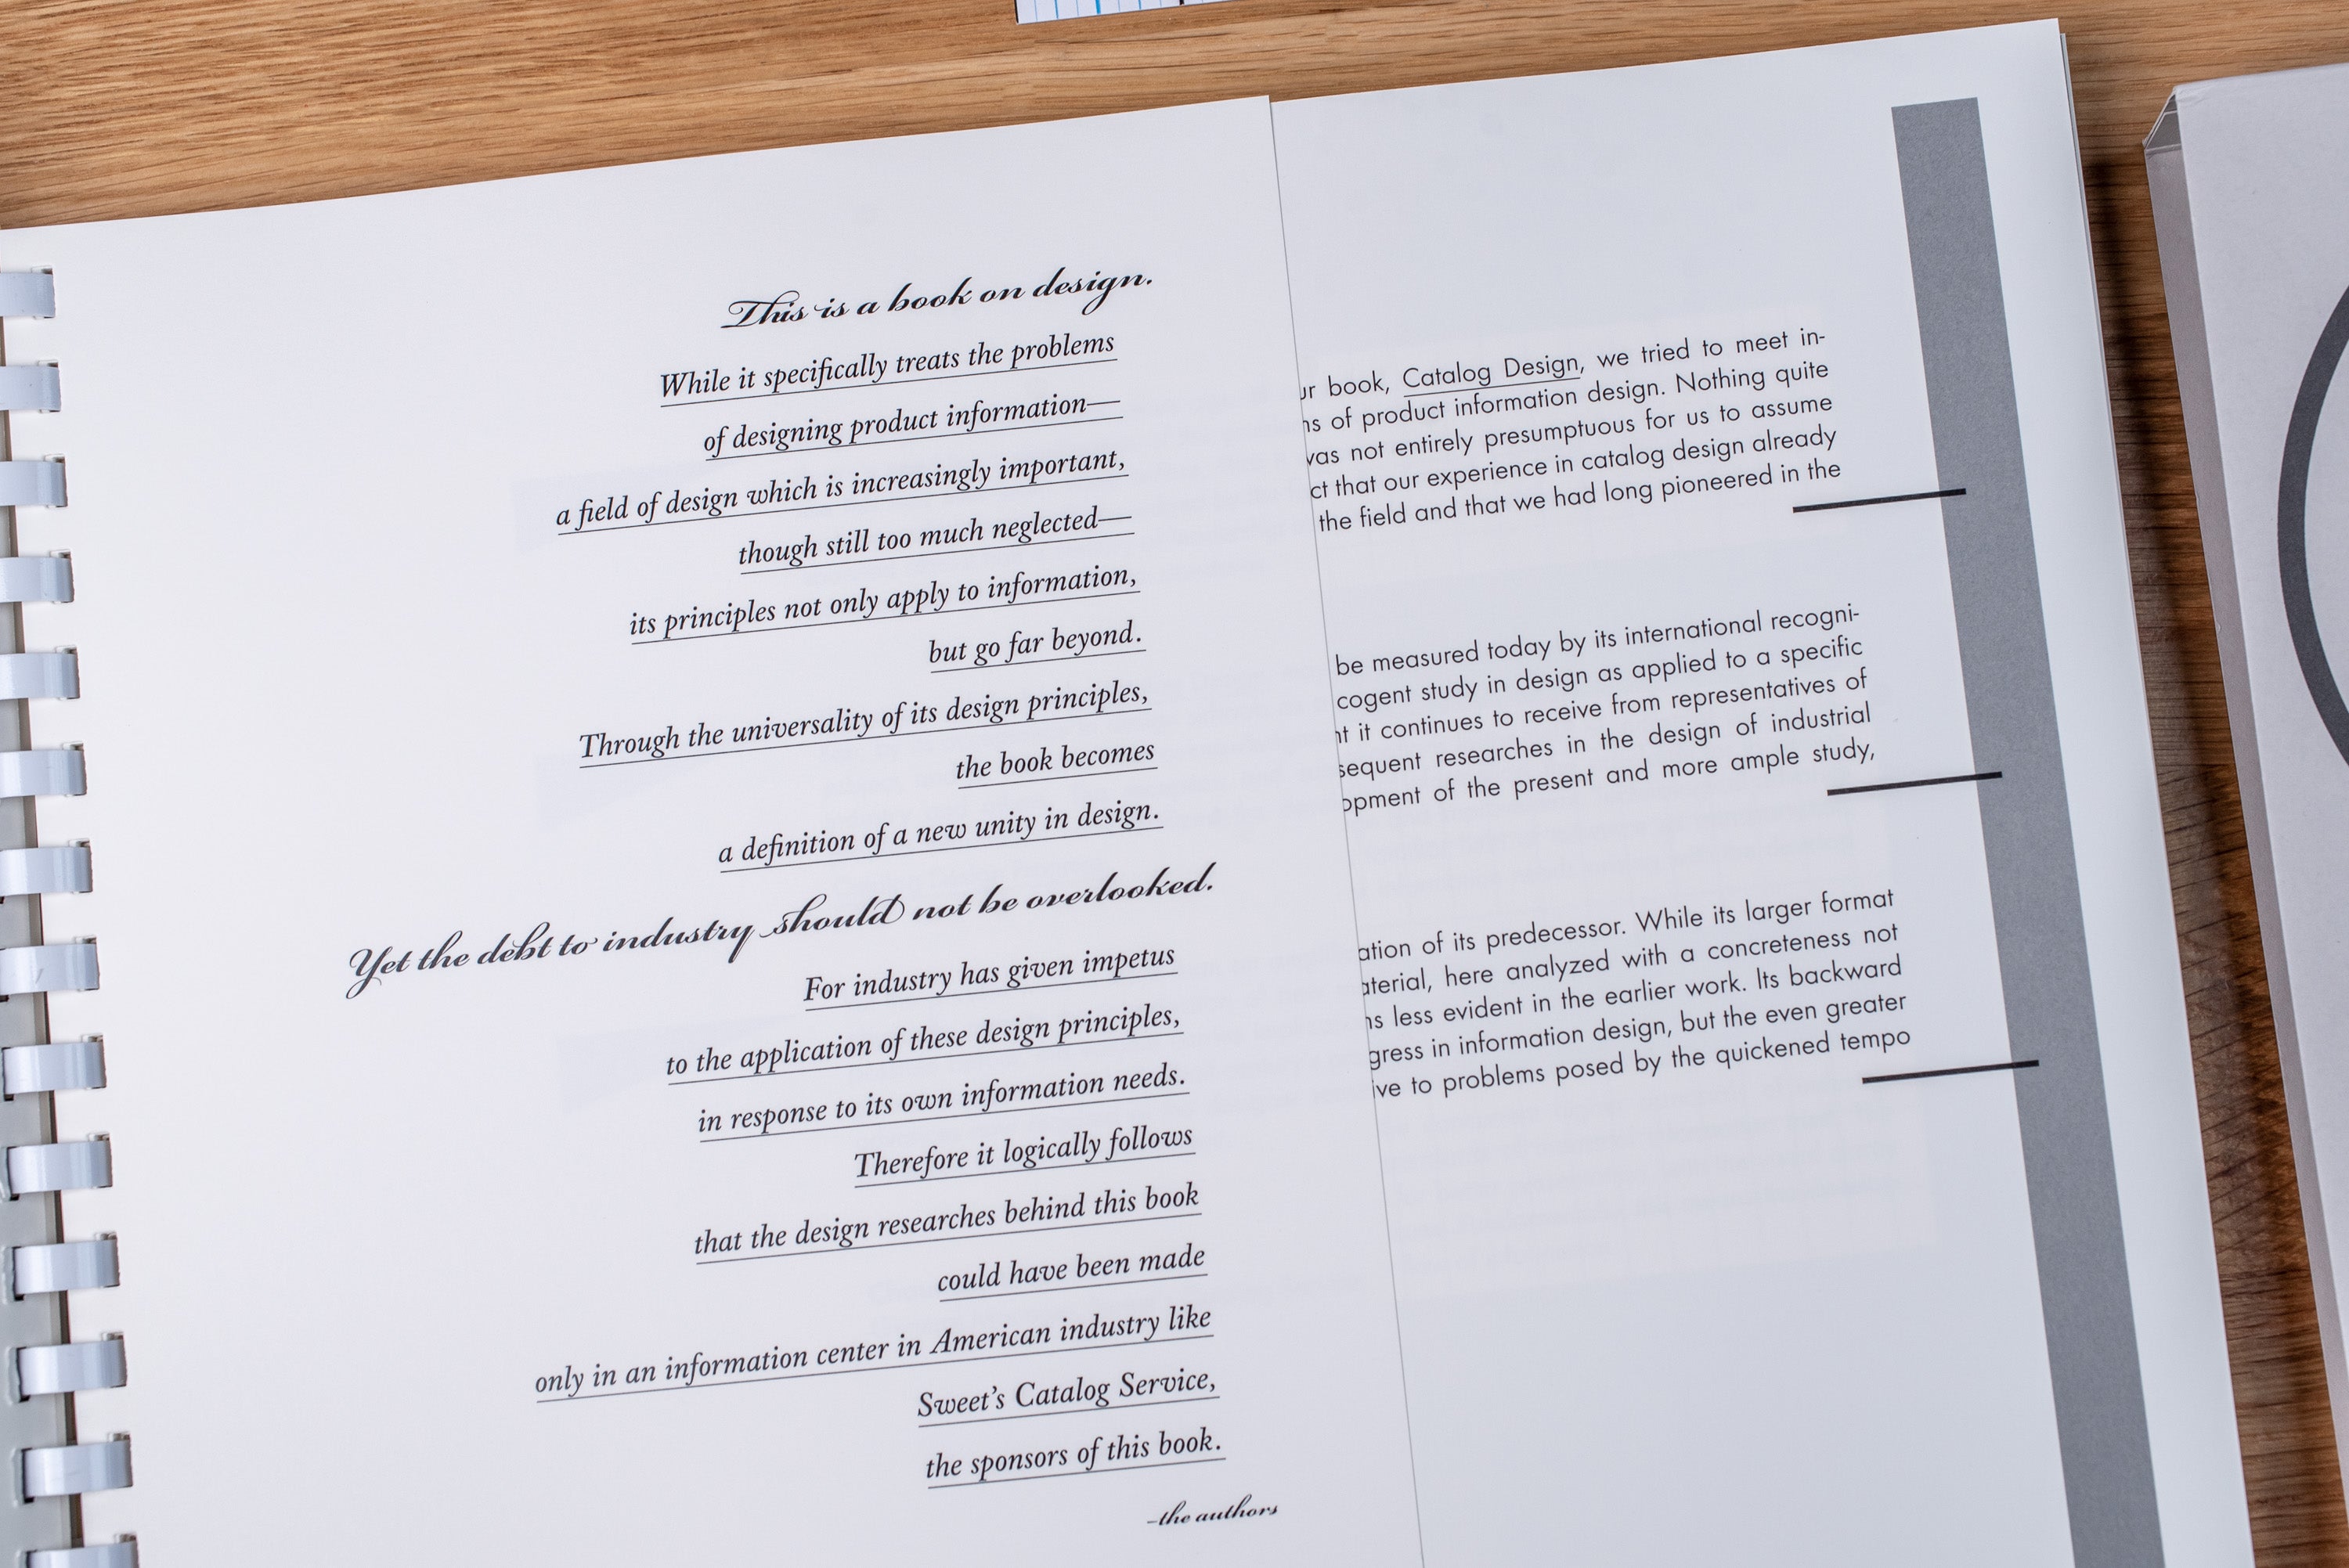 This is a book on design.
While it specifically treats the problems
of designing product information—
a field of design which is increasingly important,
though still too much neglected—
its principles not only apply to information,
but go far beyond.
Through the universality of its design principles,
the book becomes
a definition of a new unity in design.
Yet the debt to industry should not be overlooked.
For industry has given impetus
to the application of these design principles,
in response to its own information needs.
Therefore it logically follows
that the design researches behind this book
could have been made
only in an information center in American industry like
Sweet’s Catalog Service,
the sponsors of this book.
–the authors
book, Catalog Design, we tried to meet in-
of product information design. Nothing quite
not entirely presumptuous for us to assume
that our experience in catalog design already
the field and that we had long pioneered in the
be measured today by its international recogni-
cogent study in design as applied to a specific
it continues to receive from representatives of
researches in the design of industrial
of the present and more ample study,
of its predecessor. While its larger format
here analyzed with a concreteness not
less evident in the earlier work. Its backward
in information design, but the even greater
to problems posed by the quickened tempo